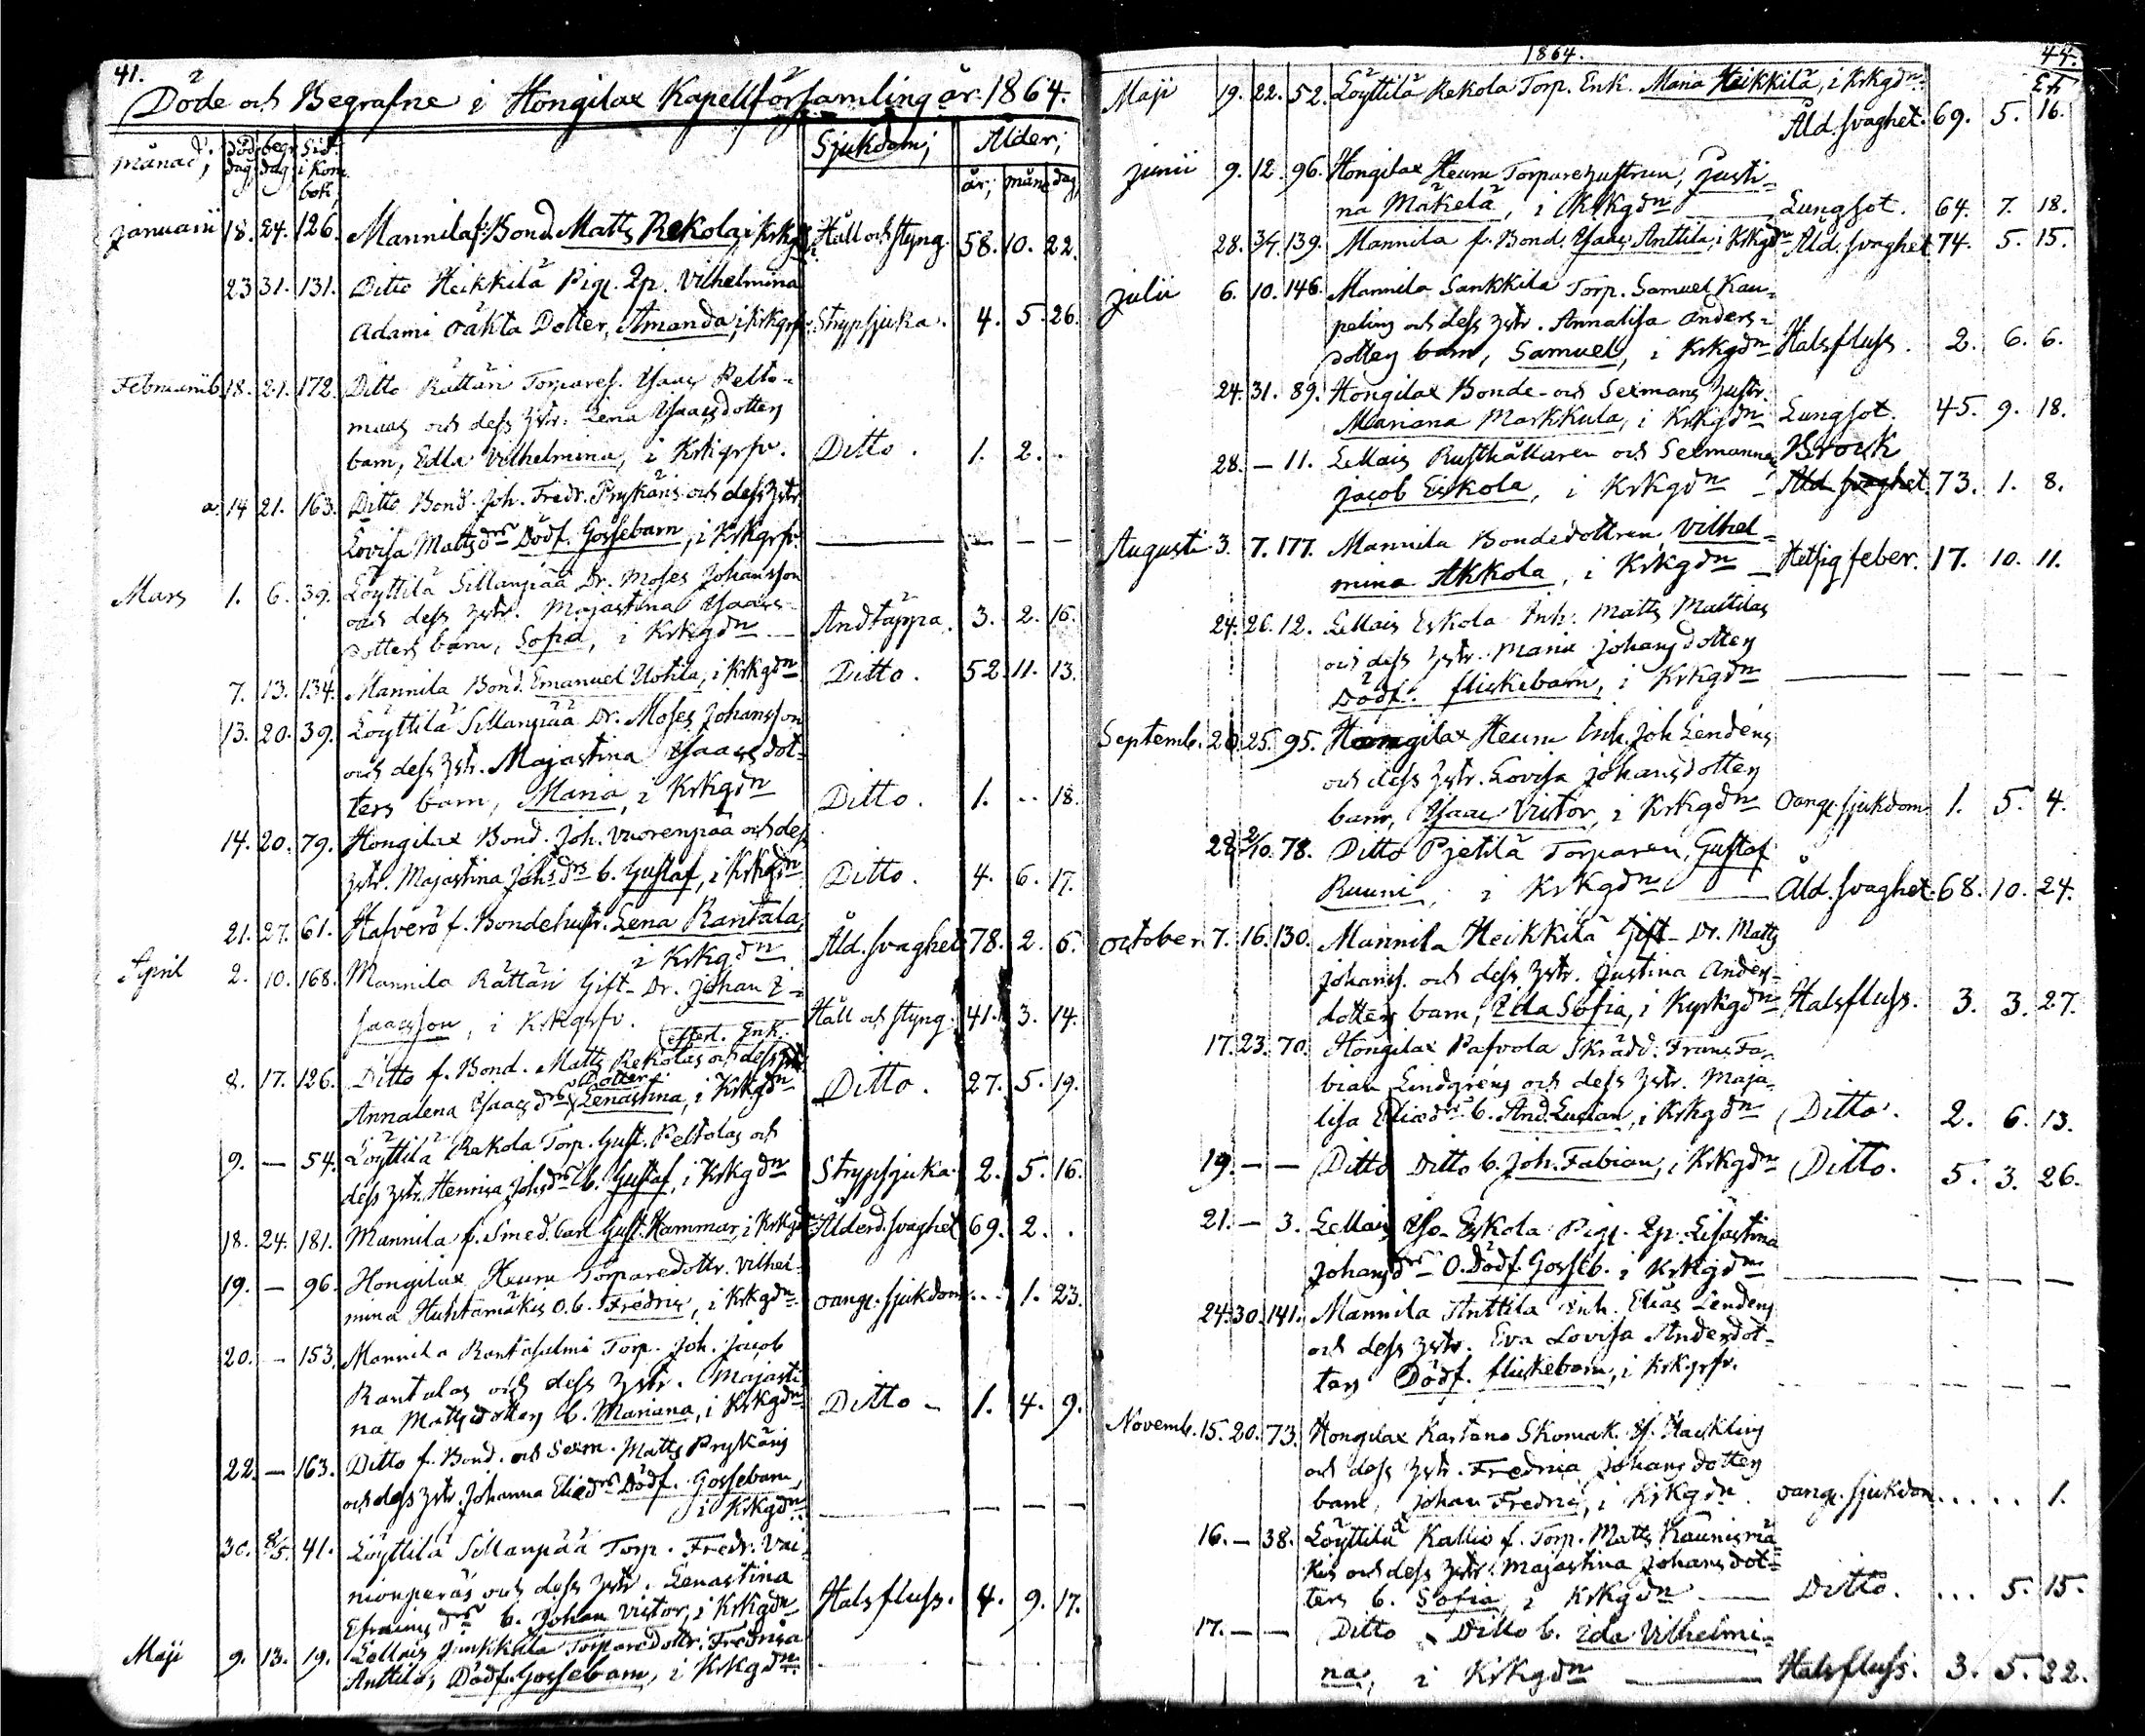 41.
Döde och Begrafne i Hongilax Kapellförsamling år 1864.
månad, död. dag, begr. dag, Sid. i Kom. bok, Sjukdom; Ålder;
år; mån. dag,
Januarii 18. 24. 126. Mannila f. Bond. Matts Rekola, i Krkgrfv. Håll och styng. 58. 10. 22.
23 31. 131. Ditto Heikkilä Pig. Ip. Vilhelmina
Adami oäkta Dotter, Amanda, i Krkgrfv. Strypsjuka. 4. 5. 26.
Februarii b. 18. 21. 172. Ditto Rättäri Torpares. Isaac Pelto-
maas och dess hstr. Lena Isaacsdotters
barn, Edla Vilhelmina, i Krkgrfv. Ditto. 1. 2. -
a. 14 21. 163. Ditto Bond. Joh. Fredr. Prykäris och dess hstr.
Lovisa Mattsdrs Dödf. Gossebarn, i Krkgrfv. — — — —
Mars 1. 6. 39. Löyttilä Sillanpää Dr. Moses Johansson
och dess hstr. Majastina Isaacs-
dotters barn, Sofia, i Krkgdn — Andtäppa. 3. 2. 16.
7. 13. 134. Mannila Bond. Emanuel Uotila, i Krkgdn Ditto. 52. 11. 13.
13. 20. 39. Löyttilä Sillanpää Dr. Moses Johansson
och dess hstr. Majastina Isaacsdot-
ters barn, Maria, i Krkgdn Ditto. 1. .. 18.
14. 20. 79. Hongilax Bond. Joh. Vuorenpää och dess
hstr. Majastina Johsdrs b. Gustaf, i Krkgdn Ditto. 4. 6. 17.
21. 27. 61. Hafverö f. Bondehustr. Lena Rantala,
i Krkgdn Åld. svaghet 78. 2. 6.
April 2. 10. 168. Mannila Rättäri Gift-Dr. Johan I-
saacsson, i Krkgrfv. Håll och styng. 41. 3. 14.
(efterl. Enk.
8. 17. 126. Ditto f. Bond. Matts Rekolas och dess hstr.
Dotter
Annalena Isaacsdrs Lenastina, i Krkgdn Ditto. 27. 5. 19.
9. — 54. Löyttilä Rekola Torp. Gust. Peltolas och
dess hstr. Henrica Johsdrs b. Gustaf, i Krkgdn Strypsjuka. 2. 5. 16.
18. 24. 181. Mannila f. Smed. Carl Gust. Hammar, i Krkgdn Ålderd. svaghet 69. 2. .
19. — 96. Hongilax Heuru Torparedottr. Vilhel-
mina Huhtamäkis o. b. Fredric, i Krkgdn oang. sjukdom ... 1. 23.
20. — 153. Mannila Rantasalmi Torp. Joh. Jacob
Rantalas och dess hstr. Majasti-
na Mattsdotters b. Mariana, i Krkgdn Ditto - 1. 4. 9.
22. — 163. Ditto f. Bond. och Sexm. Matts Prykäris
och dess hstr. Johanna Eliedrs Dödf. Gossebarn,
i Krkgdn — — — —
30. 8/5. 41. Löyttilä Sillanpää Torp. Fredr. Vai-
nionperäs och dess hstr. Lenastina
Efraimsdrs b. Johan Victor, i Krkgdn Halsfluss. 4. 9. 17.
Maji 9. 13. 19. Lellais Simskala Torparedottr. Fredrica
Anttilas Dödf. Gossebarn, i Krkgdn
1864. 44.
Maji 19. 22. 52. Löyttilä Rekola Torp. Enk. Maria Heikkilä, i Krkgdn
Åld. svaghet. 69. 5. 16.
Junii 9. 12. 96. Hongilax Heuru Torparehustrun, Justi-
na Mäkelä, i Krkgdn — Lungsot. 64. 7. 18.
28. 3/7. 139. Mannila f. Bond. Isaac Anttila, i Krkgdn Åld. svaghet 74. 5. 15.
Julii 6. 10. 146. Mannila Sankkila Torp. Samuel Kau-
pelins och dess hstr. Annalisa Anders-
dotters barn, Samuel, i Krkgdn Halsfluss. 2. 6. 6.
24. 31. 89. Hongilax Bonde- och Sexmans hustr.
Mariana Markkula, i Krkgdn Lungsot. 45. 9. 18.
28. — 11. Lellais Rusthållaren och Sexmannen Brock
Jacob Eskola, i Krkgdn - Åld. svaghet. 73. 1. 8.
Augusti 3. 7. 177. Mannila Bondedottren, Vilhel-
mina Akkola, i Krkgdn — Hetsig feber. 17. 10. 11.
24. 26. 12. Lellais Eskola Inh. Matts Mattilas
och dess hstr. Maria Johansdotters
Dödf. flickebarn, i Krkgdn — — — —
Septemb. 20. 25. 95. Hongilax Heuru Inh. Joh. Lendéns
och dess hstr. Lovisa Johansdotters
barn, Isaac Victor, i Krkgdn Oang. sjukdom 1. 5. 4.
28. 2/10. 78. Ditto Pjetilä Torparen, Gustaf
Ruuni, i Krkgdn — Åld. svaghet. 68. 10. 24.
October. 7. 16. 130. Mannila Heikkilä Gift-Dr. Matts
Johanss. och dess hstr. Justina Anders-
dotters barn, Ida Sofia, i Kyrkgdn Halsfluss. 3. 3. 27.
17. 23. 70. Hongilax Pafvola Skrädd. Frans Fa-
bian Lindgréns och dess hstr. Maja-
lisa Eliædrs b. And. Lucian, i Krkgdn Ditto. 2. 6. 13.
19. — — Ditto Ditto b. Joh. Fabian, i Krkgdn Ditto. 5. 3. 26.
21. — 3. Lellais Iso-Eskola Pig. Ip. Lisastina
Johansdrs O. Dödf. Gosseb. i Krkgdn — — — —
24. 30. 141. Mannila Anttila Inh. Elias Lendens
och dess hstr. Eva Lovisa Andersdot-
ters Dödf. flickebarn, i Krkgrfv. — — — —
Novemb. 15. 20. 73. Hongilax Kastana Skomak. Is. Hacklins
och dess hstr. Fredrica Johansdotters
barn, Johan Fredric, i Krkgdn. oang. sjukdom ... .. 1.
16. — 38. Löyttilä Kallio f. Torp. Matts Kaunismä-
kis och dess hstr. Majastina Johansdot-
ters b. Sofia, i Krkgdn — Ditto. ... 5. 15.
17. — — Ditto Ditto b. Ida Vilhelmi-
na, i Krkgdn — Halsfluss. 3. 5. 22.